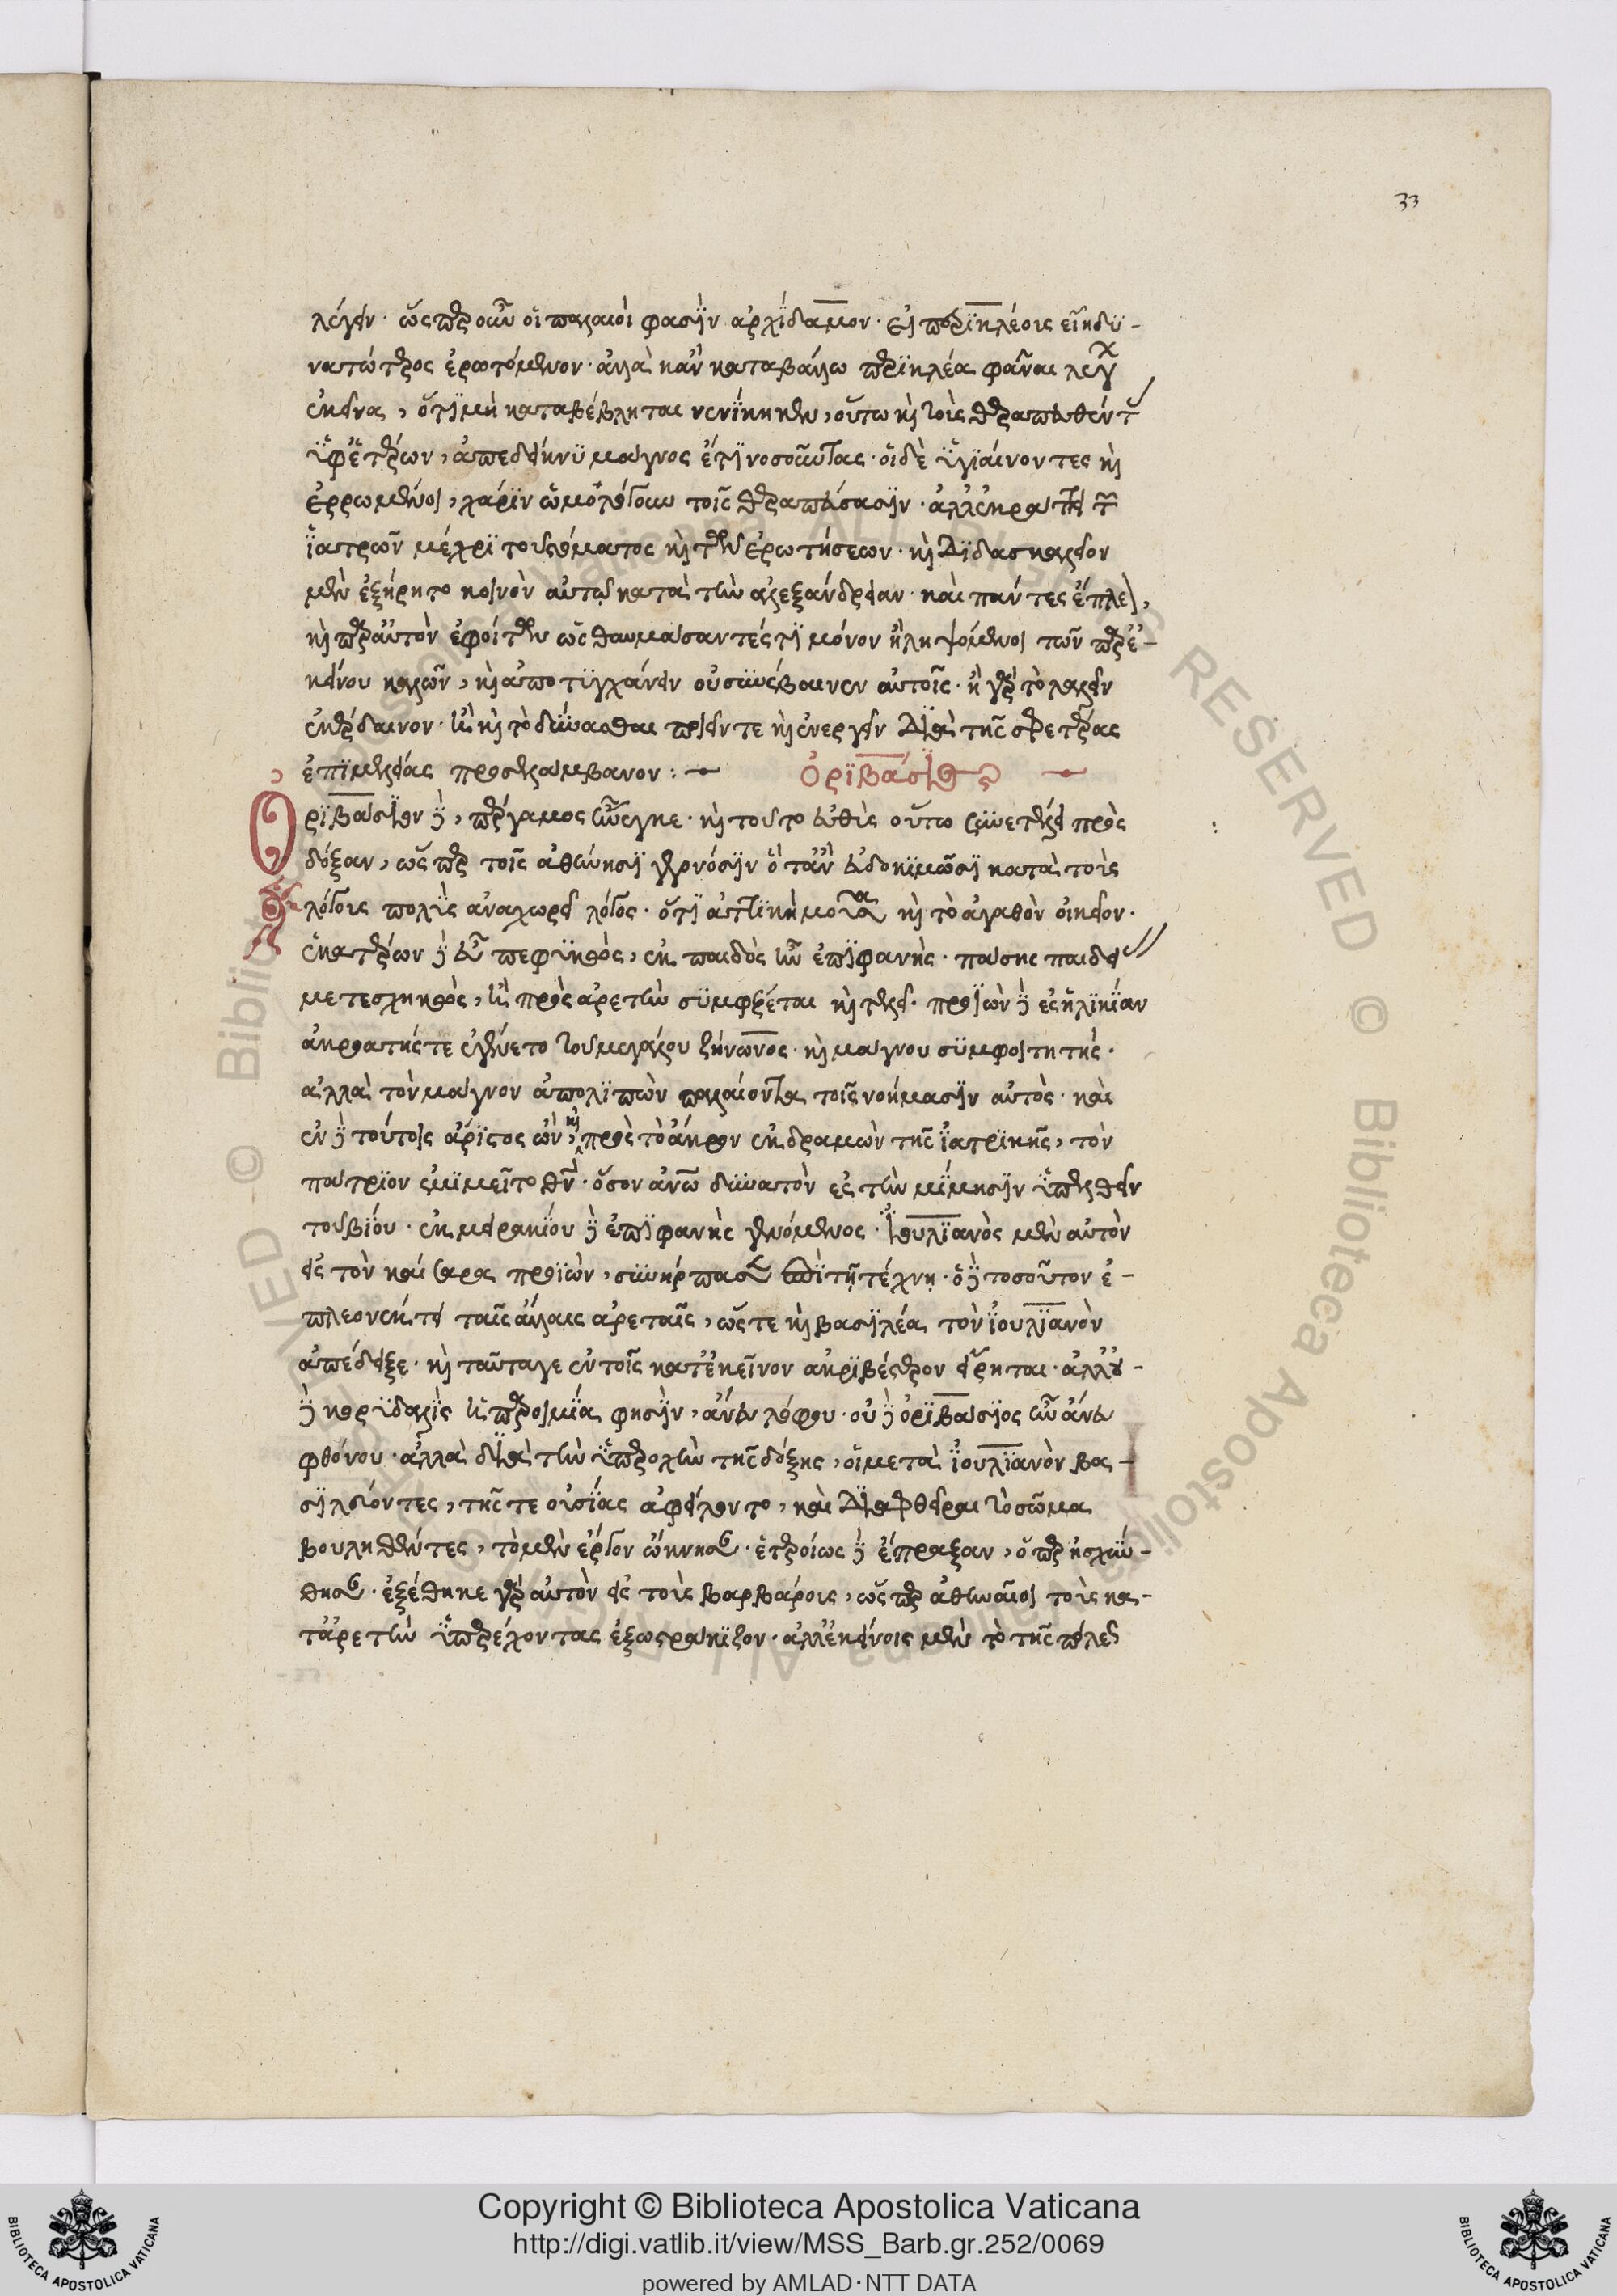 33
λέγειν· ὥσπερ οὖν οἱ παλαιοὶ φασὶν ἀρχίδαμον· εἰ περικλέους εἴη δυ-
νατώτερος ἐρωτόμενον· ἀλλὰ κἂν καταβάλλω περικλέα φάναι λέγ
ἐκεῖνος, ὅτι μὴ καταβέβληται νενίκηκεν, οὕτω καὶ τοὺς θεραπευθέντ
ὑφ' ἑτέρων, ἀπεδείκνυ μάγνος ἔτι νοσοῦντας· οἱ δὲ ὑγιαίνοντες καὶ
ἐρρωμένοι, χάριν ὡμολόγουν τοῖς θεραπεύσασιν· ἀλλ' ἐκράτει τῶν
ἰατρῶν μέχρι τοῦ στόματος καὶ τῶν ἐρωτήσεων· καὶ διδασκαλεῖον
μὲν ἐξήρητο κοινὸν αὐτῷ κατὰ τὴν ἀλεξάνδρειαν· καὶ πάντες ἔπλεον,
καὶ παρ' αὐτὸν ἐφοίτων ὡς θαυμάσαντές τι μόνον ἢ ληψόμενοι τῶν παρ' ἐ-
κείνου καλῶν, καὶ ἀποτυγχάνειν οὐ συνέβαινεν αὐτοῖς· ἢ γὰρ τὸ λαλεῖν
ἐκέρδαινον· οἱ καὶ τὸ δύνασθαι ποιεῖν τε καὶ ἐνεργεῖν διὰ τῆς σφετέρας
ἐπιμελείας προσελάμβανον:
ὀριβάσιος
Ὀριβάσιον δὲ, πέργαμος ἤνεγκε· καὶ τοῦτο εὐθὺς οὕτω συνετέλει πρὸς
δόξαν, ὥσπερ τοῖς ἀθήνησι γεγονόσιν ὅταν εὐδοκιμῶσι κατὰ τοὺς
λόγους πολὺς ἀναχωρεῖ λόγος· ὅτι ἀττικὴ μοῦσα καὶ τὸ ἀγαθὸν οἰκεῖον·
ἑκατέρων δὲ εὖ πεφυκὸς, ἐκ παιδὸς ἦν ἐπιφανής· πάσης παιδεί
μετεσχηκὸς, ἣ πρὸς ἀρετὴν συμφέρεται καὶ τελεῖ· προϊὼν δὲ ἐς ἡλικίαν
ἀκροατής τε ἐγένετο τοῦ μεγάλου ζήνωνος· καὶ μάγνου συμφοιτητής·
ἀλλὰ τὸν μάγνον ἀπολιπὼν παλαίοντα τοῖς νοήμασιν αὐτὸς· καὶ
ἐν δὲ τούτοις ἄριστος ὢν, καὶ πρὸς τὸ ἄκρον ἐκδραμὼν τῆς ἰατρικῆς, τὸν
πάτριον ἐμιμεῖτο θεὸν· ὅσον ἀνθρώπῳ δυνατὸν ἐς τὴν μίμησιν ὑπελθεῖν
τοῦ βίου· ἐκ μειρακίου δὲ ἐπιφανὴς γενόμενος· ἰουλιανὸς μὲν αὐτὸν
εἰς τὸν καίσαρα προϊὼν, συνήρπασεν ἐπὶ τῇ τέχνῃ· ὁ δὲ τοσοῦτον ἐ-
πλεονέκτει ταῖς ἄλλαις ἀρεταῖς, ὥστε καὶ βασιλέα τὸν ἰουλιανὸν
ἀπέδειξε· καὶ ταῦτα γε ἐν τοῖς κατ' ἐκεῖνον ἀκριβέστερον εἴρηται· ἀλλ' οὐ-
δὲ κορυδαλὶς ἡ παροιμία φησὶν, ἄνευ λόφου· οὐ δὲ ὀριβάσιος ἦν ἄνευ
φθόνου· ἀλλὰ διὰ τὴν ὑπεροχὴν τῆς δόξης, οἱ μετὰ ἰουλιανὸν βα-
σιλεύοντες, τῆς τε οὐσίας ἀφείλοντο, καὶ διαφθεῖραι τὸ σῶμα
βουληθέντες, τὸ μὲν ἔργον ὤκνησαν· ἑτεροίως δὲ ἔπραξαν, ὅπερ ᾐσχύν-
θησαν· ἐξέθηκε γὰρ αὐτὸν εἰς τοὺς βαρβάρους, ὥσπερ ἀθηναῖοι τοὺς κα-
τ' ἀρετὴν ὑπερέχοντας ἐξωστράκιζον· ἀλλ' ἐκείνοις μὲν τὸ τῆς πόλεως
Copyright © Biblioteca Apostolica Vaticana
http://digi.vatlib.it/view/MSS_Barb.gr.252/0069
powered by AMLAD·NTT DATA